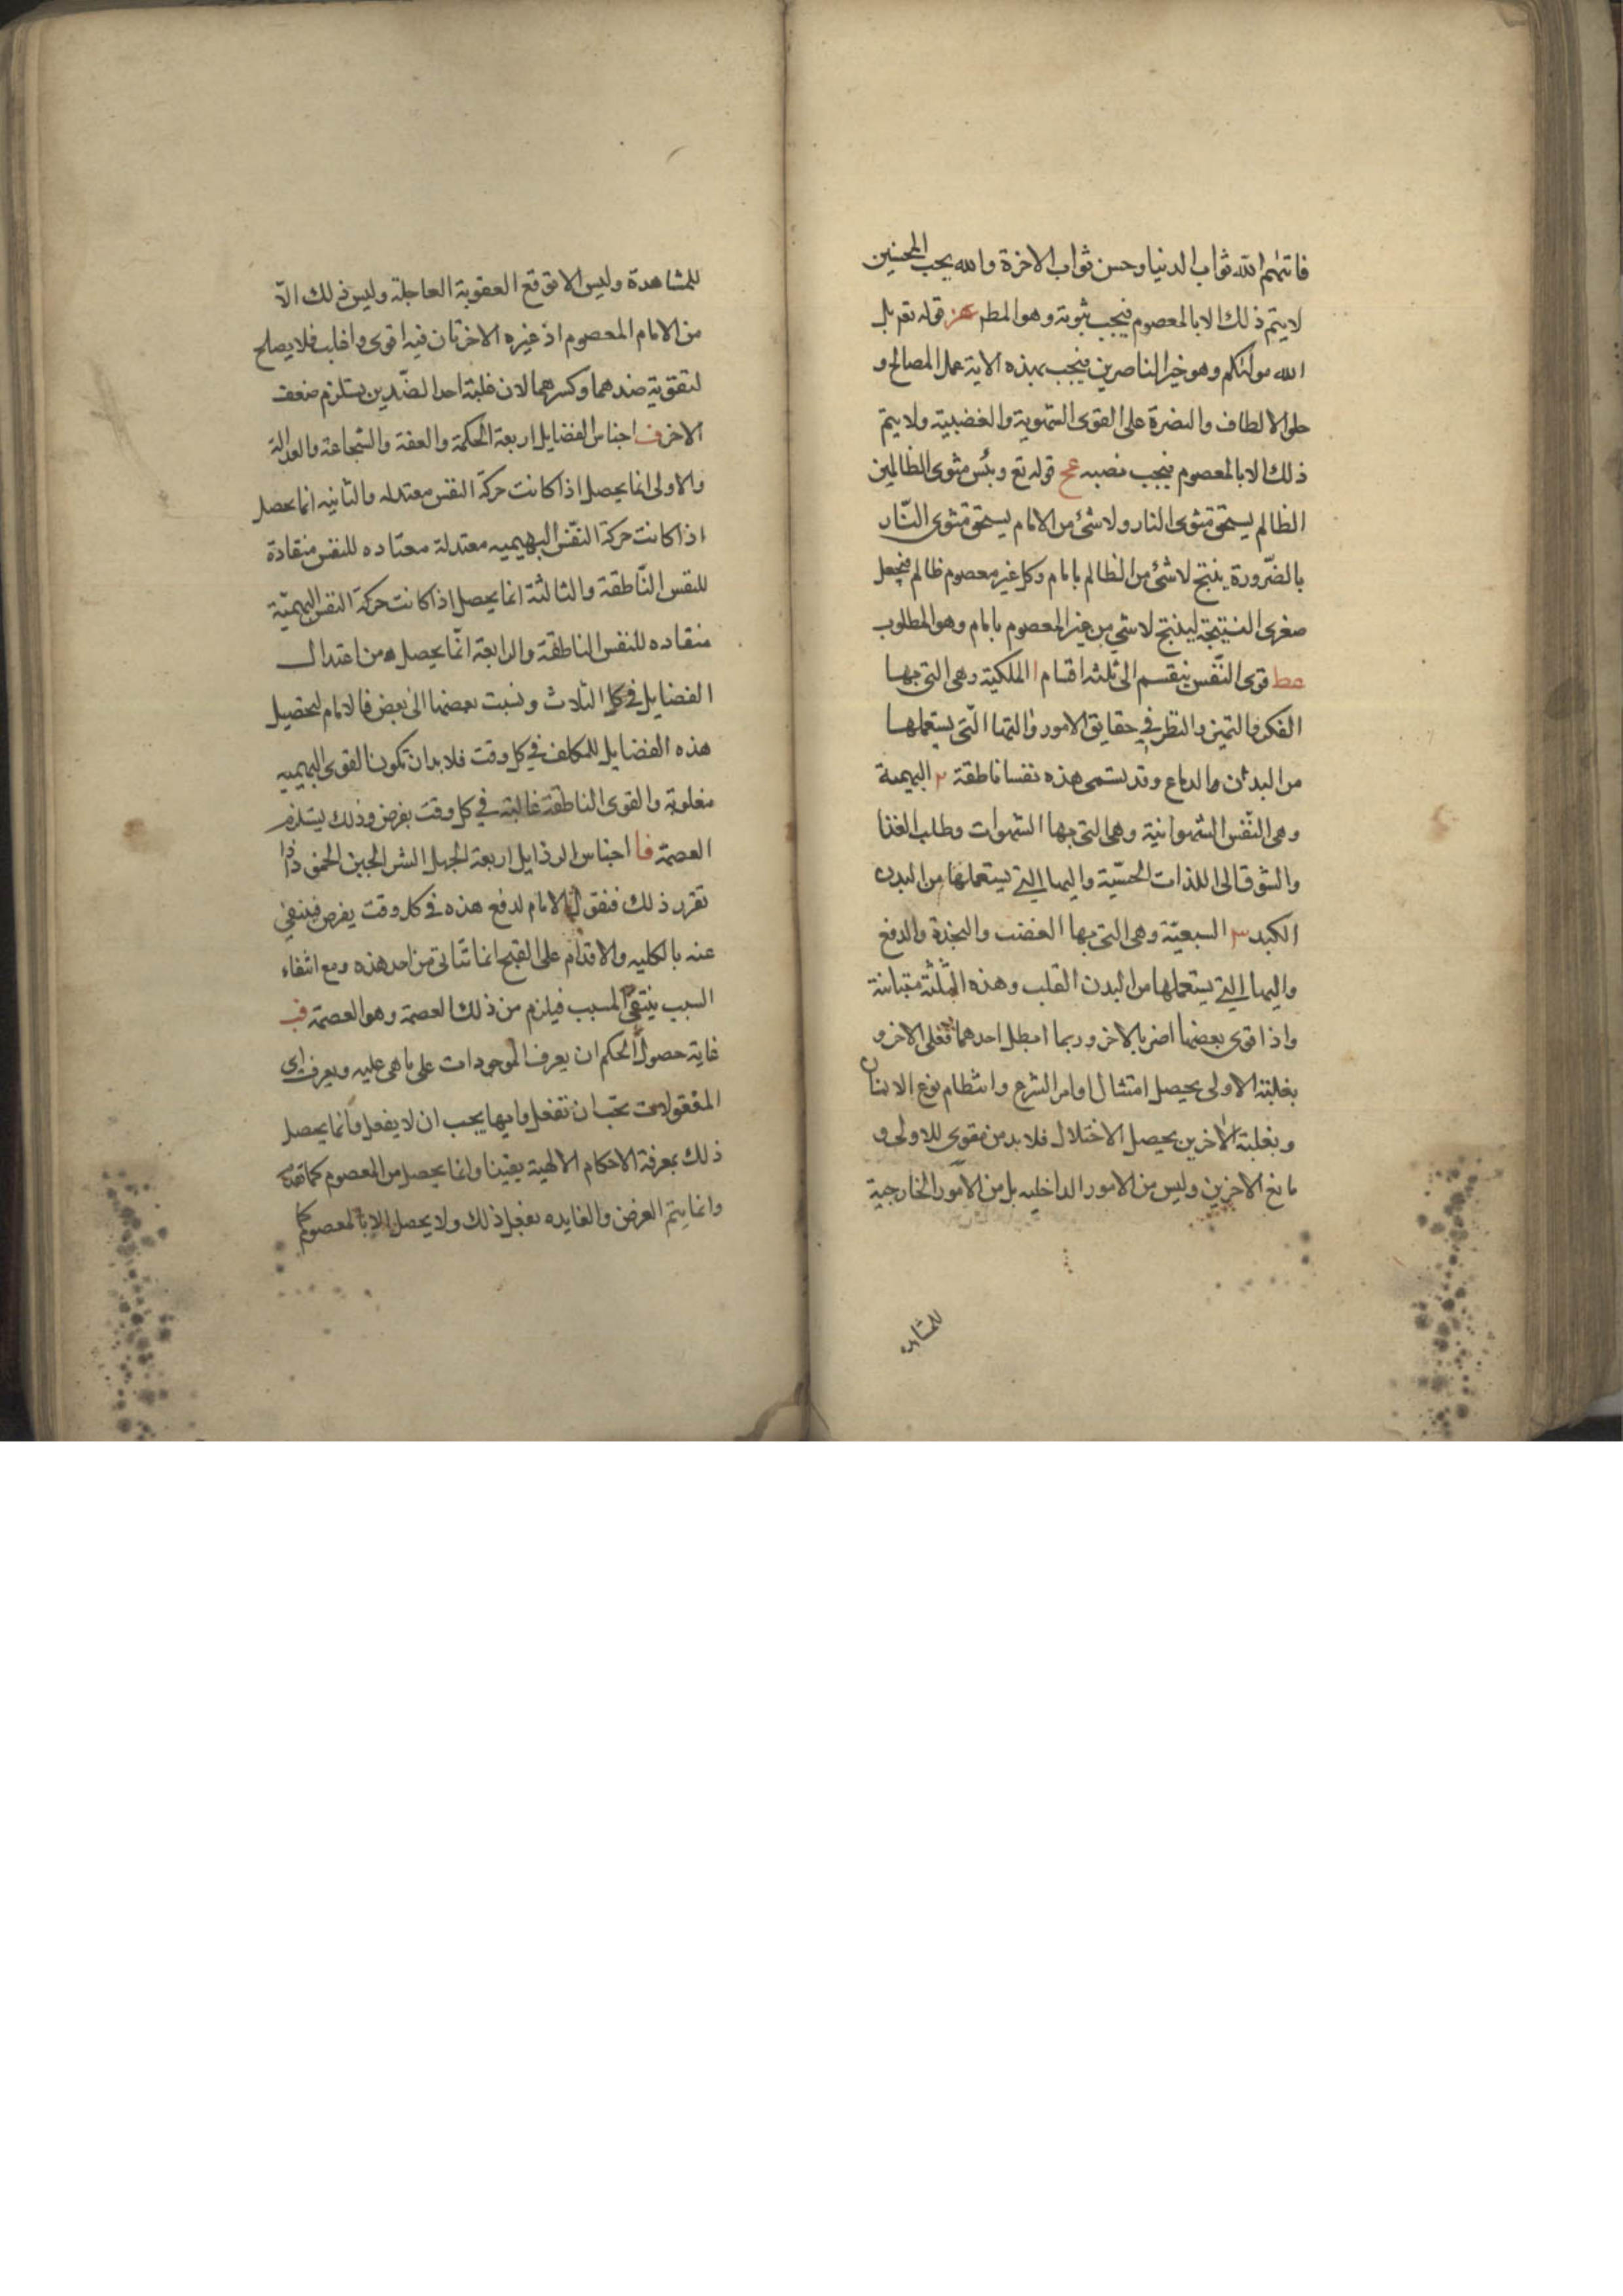 فاتيهم الله ثواب الدنيا وحسن ثواب الاخرة والله يحب المحسنين
لا يتم ذلك الا بالمعصوم فيجب ثبوته وهو المطم عز قوله تعر بل
الله موليكم وهو خير الناصرين فيجب بهذه الاية عمل المصالح و
الالطاف والنصرة على القوى الشهوية والغضبية ولا يتم
ذلك الا بالمعصوم فيجب نصبه عح قوله تع وبئس مثوى الظالمين
الظالم يستحق مثوى النار ولا شئ من الامام يستحق مثوى النار
بالضرورة ينتج لا شئ من الظالم بامام وكل غير معصوم ظالم فنجعل
صغرى النتيجة لينتج لا شي من غير المعصوم بامام وهو المطلوب
عط قوى النفس ينقسم الى ثلثه اقسام ا الملكية وهى التى بها
الفكر والتميز والنظر في حقايق الامور واليها التى يستعملها
من البدن والدماع وقد يسمى هذه نفسا ناطقة ٢ البهيمة
وهى النفس الشهوانية وهى التى بها الشهوات وطلب الغذا
والشوق الى اللذات الحسية واليها التى يستعملها من البدن
الكبد ٣ السبعية وهى التى بها الغضب والنجدة والدفع
واليها التى يستعملها من البدن القلب وهذه الثلثة متباينة
واذا قوى بعضها اضر بالاخر وربما ابطل احدهما فعل الاخر و
بغلبة الاولى يحصل امتثال اوامر الشرع وانتظام نوع الانسان
وبغلبة الاخرين يحصل الاختلال فلا بد من مقوى للاولى و
مانع الاخرين وليس من الامور الداخليه بل من الامور الخارجية
للمشاهدة
للمشاهدة وليس الا توقع العقوبة العاجلة وليس ذلك الا
من الامام المعصوم اذ غيره الاخرتان فيه اقوى واغلب فلا يصلح
لتقوية ضدهما وكسرهما لان غلبة احد الضدين يستلزم ضعف
الاخر ف اجناس الفضايل اربعة الحكمة والعفة والشجاعة والعدالة
والاولى انما يحصل اذا كانت حركة النفس معتدله والثانيه انما يحصل
اذا كانت حركة النفس البهيميه معتدلة معتاده للنفس منقادة
للنفس الناطقة والثالثة انما يحصل اذا كانت حركة النفس البهيمية
منقاده للنفس الناطقة والرابعة انما يحصل من اعتدال
الفضايل في كل الثلاث ونسبت بعضها الى بعض فالامام لتحصيل
هذه الفضايل للمكلف في كل وقت فلا بد ان تكون القوى البهيميه
مغلوبة والقوى الناطقة غالبة في كل وقت بفرض وذلك يستلزم
العصمة فا اجناس الرذايل اربعة الجهل الشر الجبن الحمق واذا
تقرر ذلك فنقول الامام لدفع هذه في كل وقت يفرض فينتفي
عنه بالكليه والاقدام على القبح انما تتاتى من احد هذه ومع انتفاء
السبب ينتفي المسبب فيلزم من ذلك العصمة وهو العصمة فب
غاية حصول الحكم ان يعرف الموجودات على ما هى عليه ويعرف اى
المفعولات يجب ان تفعل وايها يجب ان لا يفعل وانما يحصل
ذلك بمعرفة الاحكام الالهية يقينا وانما يحصل من المعصوم كما تقدم
وانما يتم الغرض والفايده بفعل ذلك ولا يحصل الا بالمعصوم كما